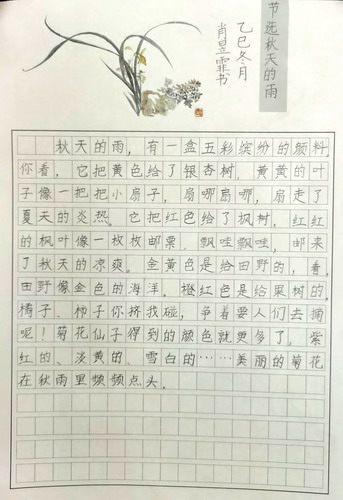 节选秋天的雨
乙巳冬月
肖昱霏书
秋天的雨，有一盒五彩缤纷的颜料，
你看，它把黄色给了银杏树，黄黄的叶
子像一把把小扇子，扇哪扇哪，扇走了
夏天的炎热。它把红色给了枫树，红红
的枫叶像一枚枚邮票，飘哇飘哇，邮来
了秋天的凉爽。金黄色是给田野的，看，
田野像金色的海洋。橙红色是给果树的，
橘子、柿子你挤我碰，争着要人们去摘
呢！菊花仙子得到的颜色就更多了，紫
红的、淡黄的、雪白的……美丽的菊花
在秋雨里频频点头。